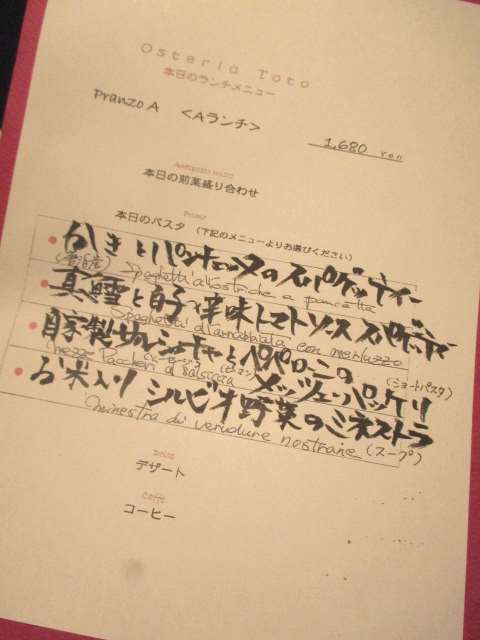 Osteria Toto
本日のランチメニュー
Pranzo A <Aランチ> 1,680 yen
Antipasto misto
本日の前菜盛り合わせ
Primo
本日のパスタ (下記のメニューよりお選びください)
かきとパンチェッタのスパゲッティー
Spaghetti all'ostriche e pancetta
真鱈と白子の辛味トマトソース スパゲッティー
Spaghetti all'arrabbiata con merluzzo
自家製サルシッチャとペペローニの メッツェ・パッケリ
(ソーセージ) (ピーマン) (ショートパスタ)
Mezze Paccheri al salsiccia
お米入り シルビオ野菜のミネストラ
Minestra di verudure nostraine (スープ)
dolce
デザート
Caffè
コーヒー